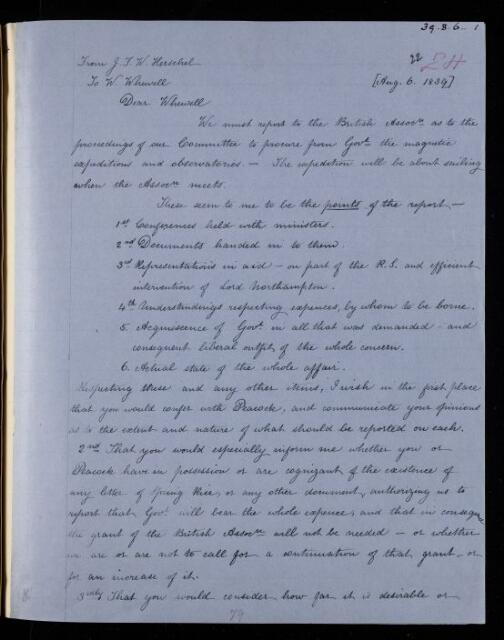 39. 8. 6. 1
22 EH
From J. F. W. Herschel
To W. Whewell
[Aug. 6. 1839]
Dear Whewell
We must report to the British Assocn. as to the
proceedings of our Committee to procure from Govt. the magnetic
expeditions and observatories. — The expedition will be about sailing
when the Assocn. meets.
These seem to me to be the points of the report —
1st Conferences held with ministers.
2nd Documents handed in to them.
3rd Representations in aid — on part of the R.S. and efficient
intervention of Lord Northampton.
4th Understandings respecting expences, by whom to be borne.
5. Acquiescence of Govt. in all that was demanded — and
consequent liberal outfit of the whole concern.
6. Actual state of the whole affair.
Respecting these and any other items, I wish in the first place
that you would confer with Peacock, and communicate your opinions
as to the extent and nature of what should be reported on each.
2nd. That you would especially inform me whether you or
Peacock have in possession or are cognizant of the existence of
any letter of Spring Rice, or any other document, authorizing us to
report that Govt. will bear the whole expence, and that in conseqnce
the grant of the British Assocn. will not be needed — or whether
we are or are not to call for a continuation of that grant, or
for an increase of it.
3rdly That you would consider how far it is desirable or
79